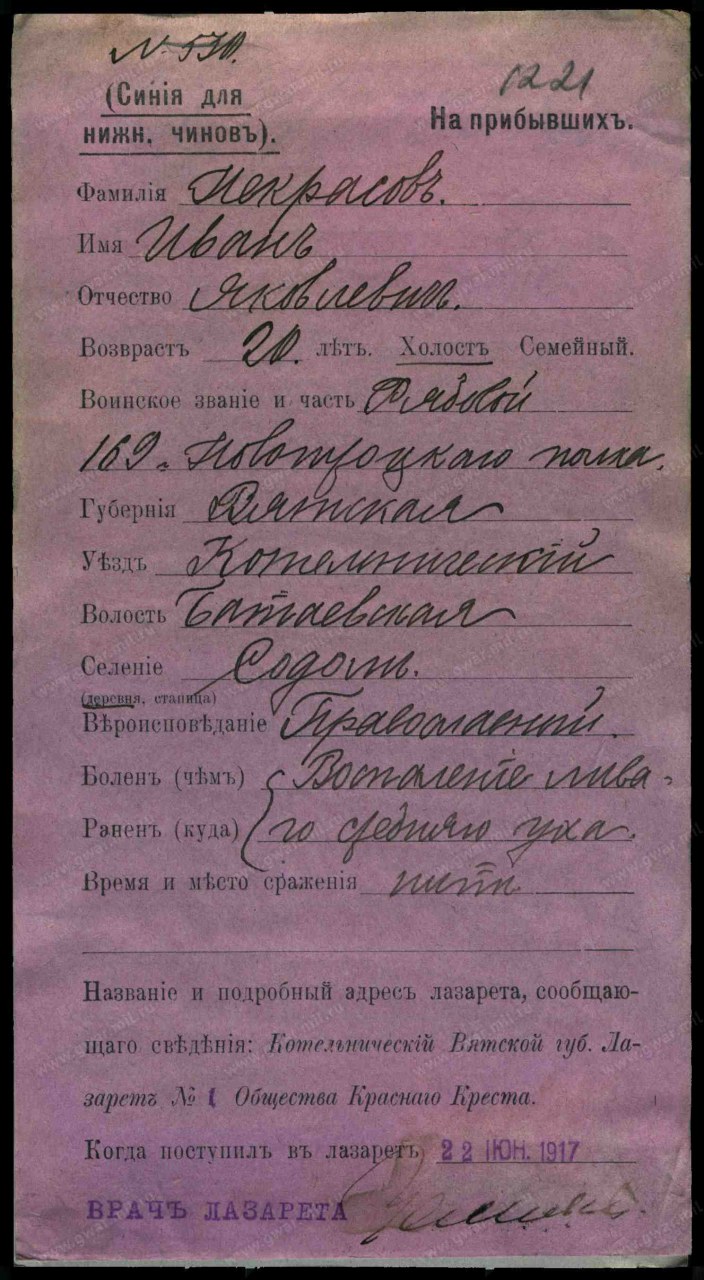 № 530.
1221
(Синія для
нижн. чиновъ).
На прибывшихъ.
Фамилія Некрасовъ.
Имя Иванъ
Отчество Яковлевичъ.
Возврастъ 20. лѣтъ. Холостъ Семейный.
Воинское званіе и часть Рядовой
169. Новотроцкаго полка.
Губернія Вятская
Уѣздъ Котельническій
Волость Батаевская
Селеніе Содомъ.
(деревня, станица)
Вѣроисповѣданіе Православный.
Боленъ (чѣмъ) Воспаленіе лѣва-
Раненъ (куда) го средняго уха.
Время и мѣсто сраженія
Названіе и подробный адресъ лазарета, сообщаю-
щаго свѣдѣнія: Котельническій Вятской губ. Ла-
заретъ № 1 Общества Краснаго Креста.
Когда поступилъ въ лазаретъ 22 ІЮН. 1917
ВРАЧЪ ЛАЗАРЕТА
www.gwar.mil.ru